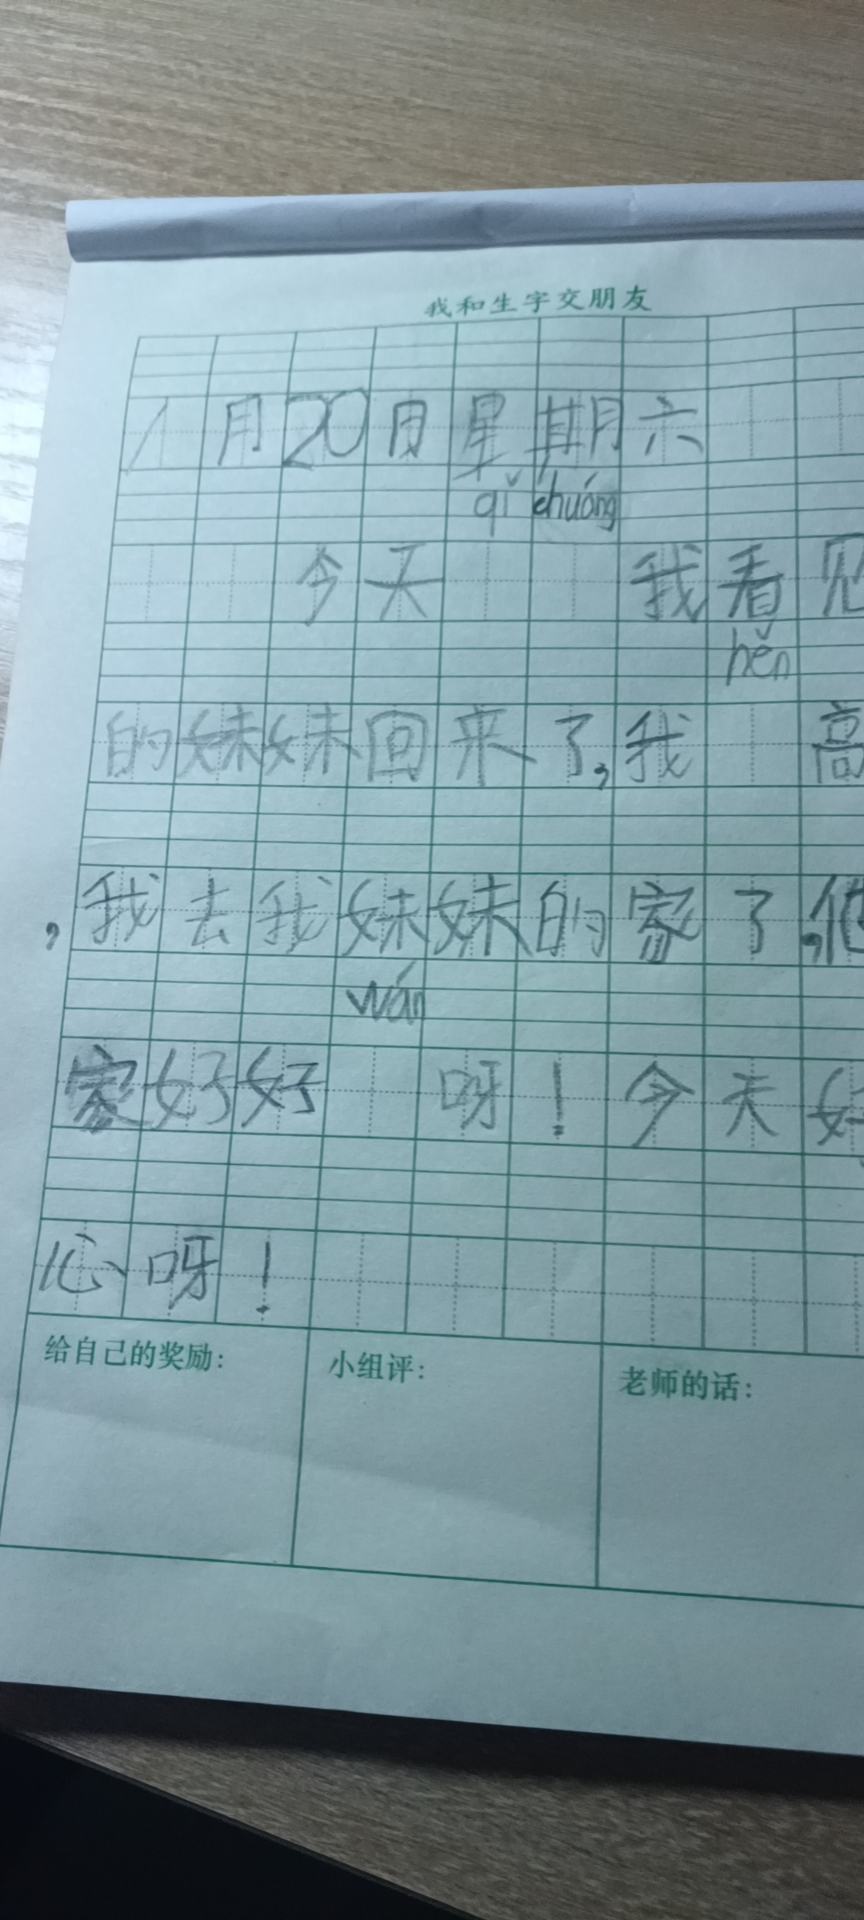 我和生字交朋友
1月20日星期六
qǐ chuáng
今天 我看见
hěn
的妹妹回来了,我 高
,我去我妹妹的家了,他
wán
家好好 呀！今天好
心呀！
给自己的奖励：
小组评：
老师的话：